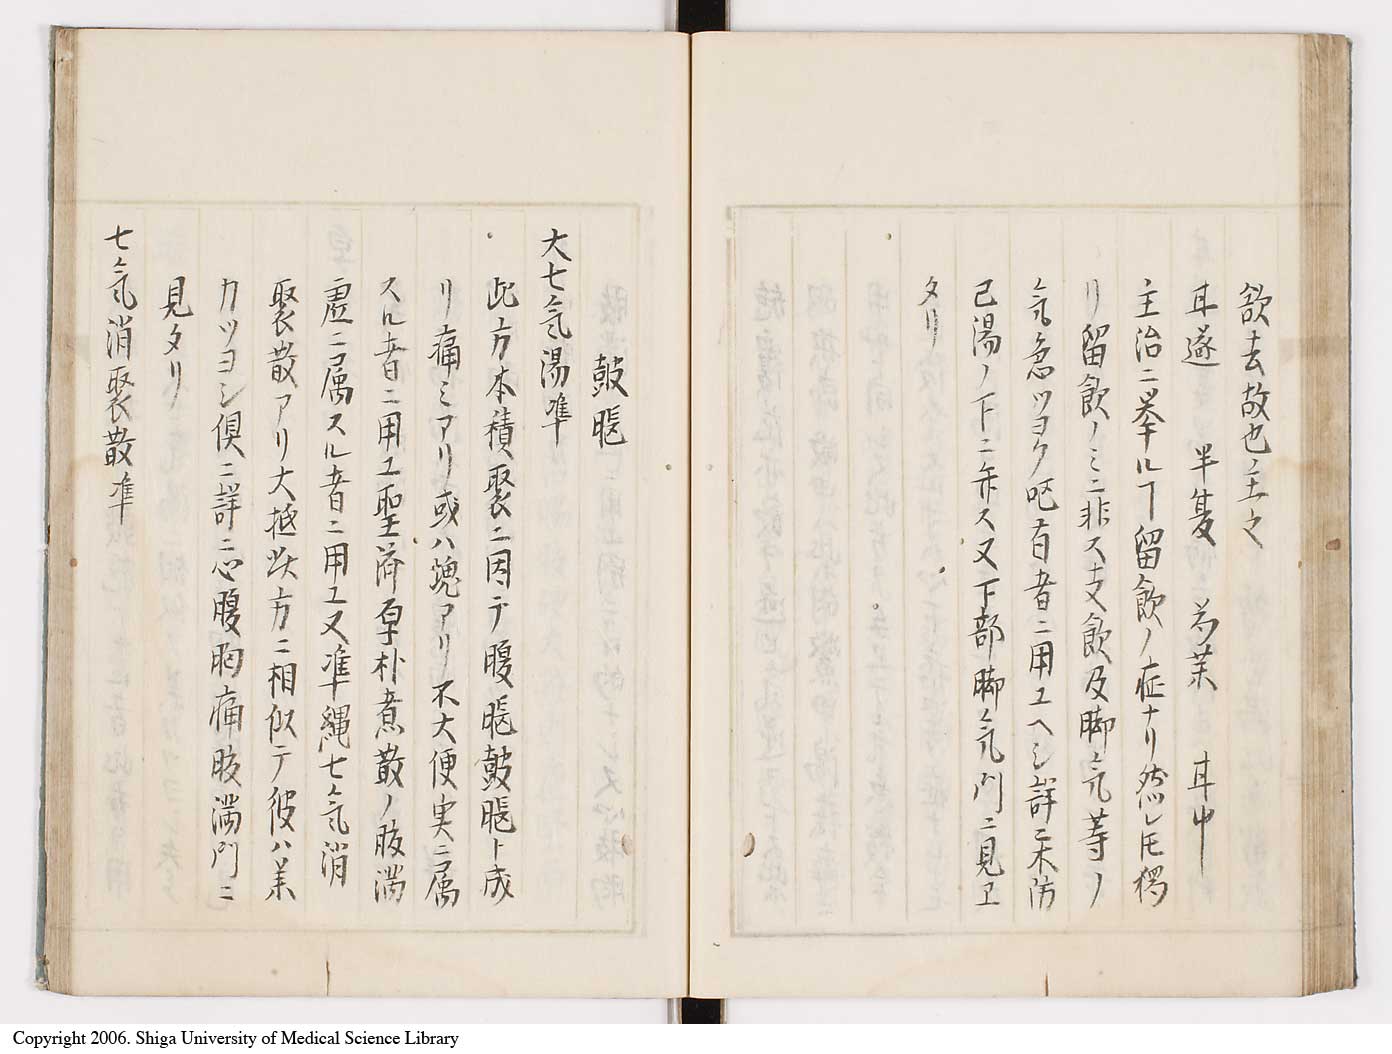 欲去故也主之
甘遂 半夏 芍薬 甘中
主治ニ挙ルヿ留飲ノ症ナリ然レ𪜈
リ留飲ノミニ非ス支飲及脚気等ノ
気急ツヨク呕有者ニ用エヘシ詳ニ木防
已湯ノ下ニ弁ス又下部脚気門ニ見ヱ
タリ
鼓脹
大七気湯準
此方本積聚ニ因テ腹脹鼓脹ト成
リ痛ミアリ或ハ塊アリ不大便実ニ属
スル者ニ用エ聖済厚朴煮散ノ肢満
虚ニ属スル者ニ用エ又準縄七気消
聚散アリ大抵此方ニ相似テ彼ハ薬
力ツヨシ倶ニ詳ニ心腹胸痛肢満門ニ
見タリ
七気消聚散準
Copyright 2006. Shiga University of Medical Science Library